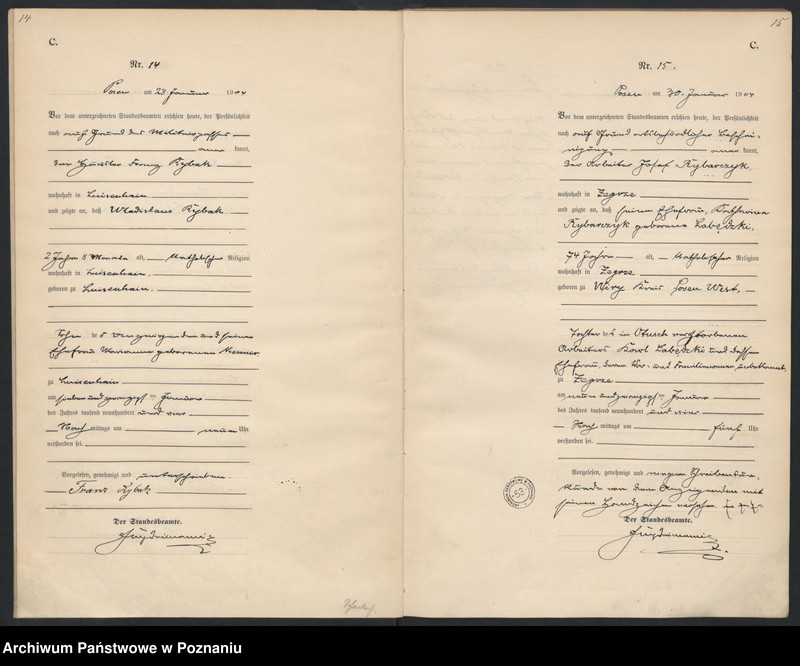 14
C.
Nr. 14
Posen am 23 Januar 1904
Vor dem unterzeichneten Standesbeamten erschien heute, der Persönlichkeit
nach auf Grund des Militärpasses
kannt,
der Häusler Franz Rybak
wohnhaft in Luisenhain
und zeigte an, daß Wladislaus Rybak
2 Jahre 8 Monate alt, katholischer Religion
wohnhaft in Luisenhain
geboren zu Luisenhain
Sohn des und seiner
Ehefrau Marianna geborenen
zu Luisenhain
am siebenundzwanzigsten Januar
des Jahres tausend neunhundert und vier
Nach mittags um neun Uhr
verstorben sei.
Vorgelesen, genehmigt und unterschrieben
Franz Rybak
Der Standesbeamte.
15
C.
Nr. 15.
Posen am 30. Januar 1904
Vor dem unterzeichneten Standesbeamten erschien heute, der Persönlichkeit
nach auf Grund ortsbehördlicher Beschei-
nigung kannt,
der Arbeiter Josef Rybarczyk
wohnhaft in Zegrze
und zeigte an, daß seine Ehefrau, Katharina
Rybarczyk geborene Labędzki,
74 Jahre alt, katholischer Religion
wohnhaft in Zegrze
geboren zu Wiry Kreis Posen West,
Tochter des in verstorbenen
Arbeiters Karl Labędzki und dessen
Ehefrau, deren Vor- und Familienname unbekannt,
zu Zegrze
am neunundzwanzigsten Januar
des Jahres tausend neunhundert und vier
Nach mittags um fünf Uhr
verstorben sei.
Vorgelesen, genehmigt und wegen Schreibensun-
kunde von dem Anzeigenden mit
seinem Handzeichen versehen. +++
Der Standesbeamte.
53
Archiwum Państwowe w Poznaniu